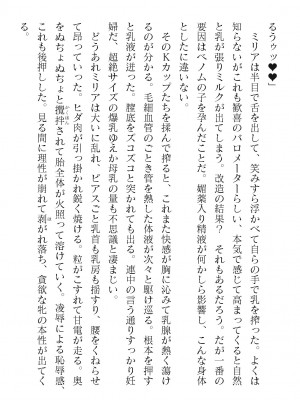 るうゥッ♥♥」
　ミリアは半目で舌を出して、笑みすら浮かべて自らの手で乳を搾った。よくは
知らないがこれも歓喜のバロメーターらしい、本気で感じて高まってくると自然
と乳が張りミルクが出てしまう。改造の結果？　それもあるだろう。だが一番の
要因はベノムの子を孕んだことだ。媚薬入り精液が何かしら影響し、こんな身体
としたに違いない。
　そのKカップたちを揉んで搾ると、これまた快感が胸に沁みて乳腺が熱く蕩け
るのが分かる。毛細血管のごとき管を熱した体液が次々と駆け巡る。根本を押す
と乳液が迸った。膣底をズコズコと突かれても出る。連中の言う通りすっかり妊
婦だ、超絶サイズの爆乳ゆえか母乳の量も不思議と凄まじい。
　どうあれミリアは大いに乱れ、ピアスごと乳首も乳房も揺すり、腰をくねらせ
て昂っていた。ヒダ肉が引っ掛かれ鋭く焼ける。粒がこすれて甘電が走る。奥
をぬちょぬちょと攪拌されて胎全体が火照って溶けていく。凌辱による恥辱感、
これも後押しした。見る間に理性が崩れて剥がれ落ち、貪欲な牝の本性が出てく
る。